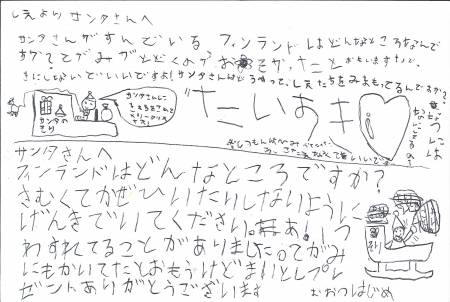 しえより サンタさんへ
サンタさんがすんでいる フィンランドはどんなところなんで
すか?てがみがとどくのが おそかったと おもいますけど、
きにしないでいいですよ!サンタさんはどうやって、しえたちをみまもってるんですか?
なつには
なにしてるの?
サンタさんに
そりにのって
サンタの
そり
だいすき
サンタさんへ
フィンランドはどんなところですか?
さむくてかぜひいたりしないように
げんきでいてください。あ!1つ
わすれてることがありました。ってがみ
にもかいてたとおもうけどきょねんプレ
ゼントありがとうございます
おおつはじめ